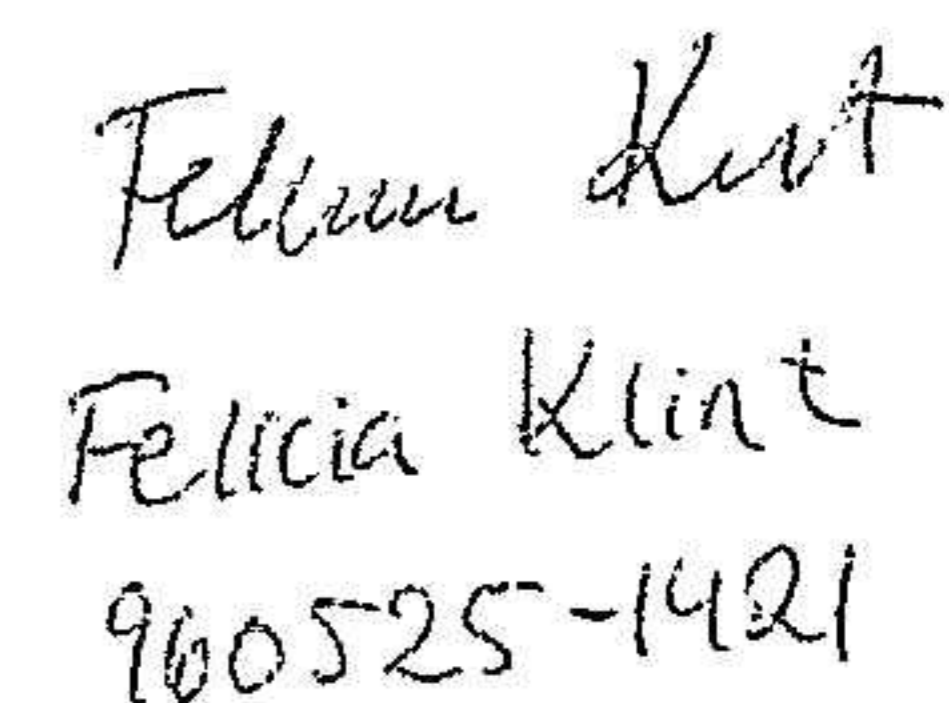 Felicia Klint
Felicia Klint
960525-1421